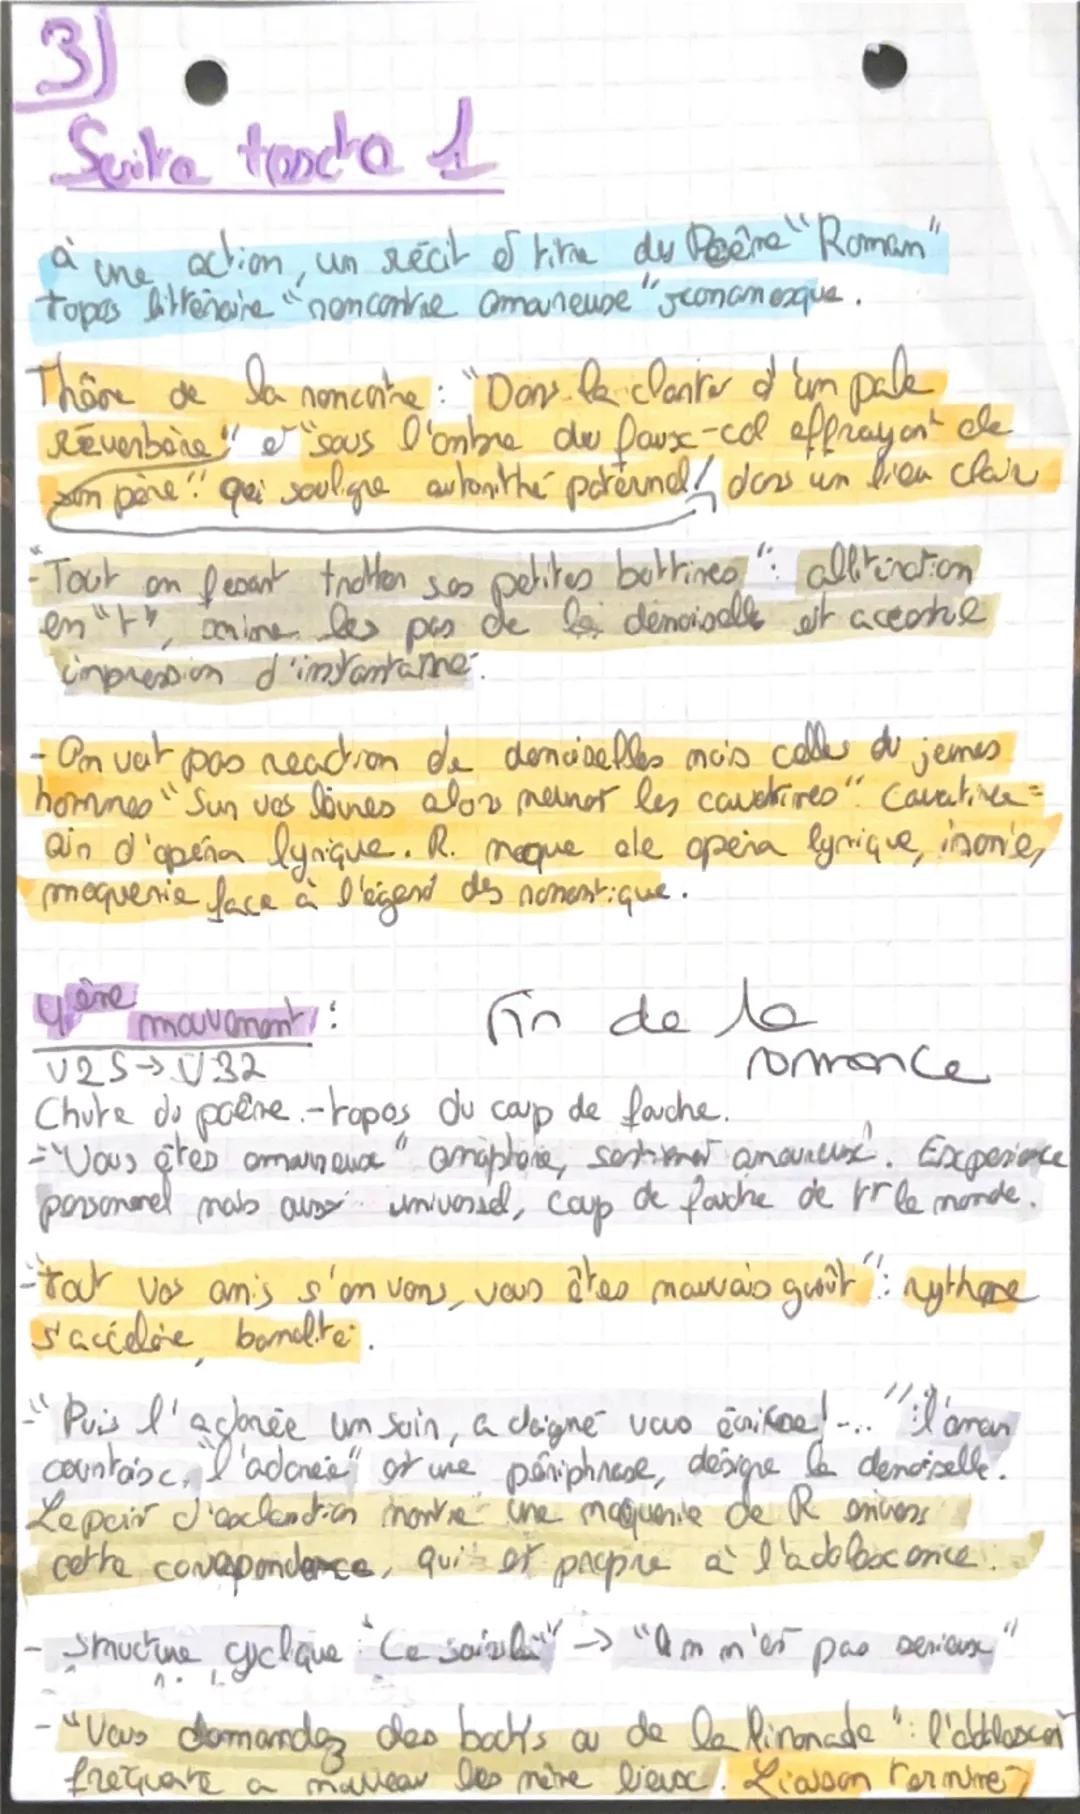 3)
Suite texte 1
à une action, un récit et titre du Poème "Roman"
topos littéraire "rencontre amoureuse" romanesque.
Thème de la rencontre : "Dans la clarter d'un pale
réverbère" et "sous l'ombre du faux-col effrayant de
son père" qui souligne autorithé paternel / dans un lieu clair
- "Tout en fesant trotter ses petites bottines" : allitération
en "t", anime les pas de la demoiselle et
impression d'instantané.
- On voit pas reaction de demoiselles mais celles du jeunes
hommes "Sur vos lèvres alors meurent les cavatines". Cavatine =
air d'opéra lyrique. R. moque de opéra lyrique, ironie,
moquerie face à l'égard des romantique.
4ème mouvement : Fin de la
romance
V25 → V32
Chute du poème. - topos du coup de foudre.
- "Vous êtes amoureux" anaphore, sentiment amoureux. Experience
personnel mais aussi universel, coup de foudre de tt le monde.
- "tout vos amis s'en vons, vous êtes mauvais goût" : rythme
s'accélère, banalité.
- "Puis l'adorée un soir, a daigné vous écrire !-..." : l'amour
courtaise, "l'adorée" est une périphrase, désigne la demoiselle.
Le point d'exclamation montre une moquerie de R envers
cette correspondance, qui est propre à l'adolescence.
- structure cyclique : "Ce soir là" → "On n'est pas serieux"
- "Vous demandez des bocks ou de la limonade" : l'adolescent
fréquente a nouveau les même lieux. Liaison terminé